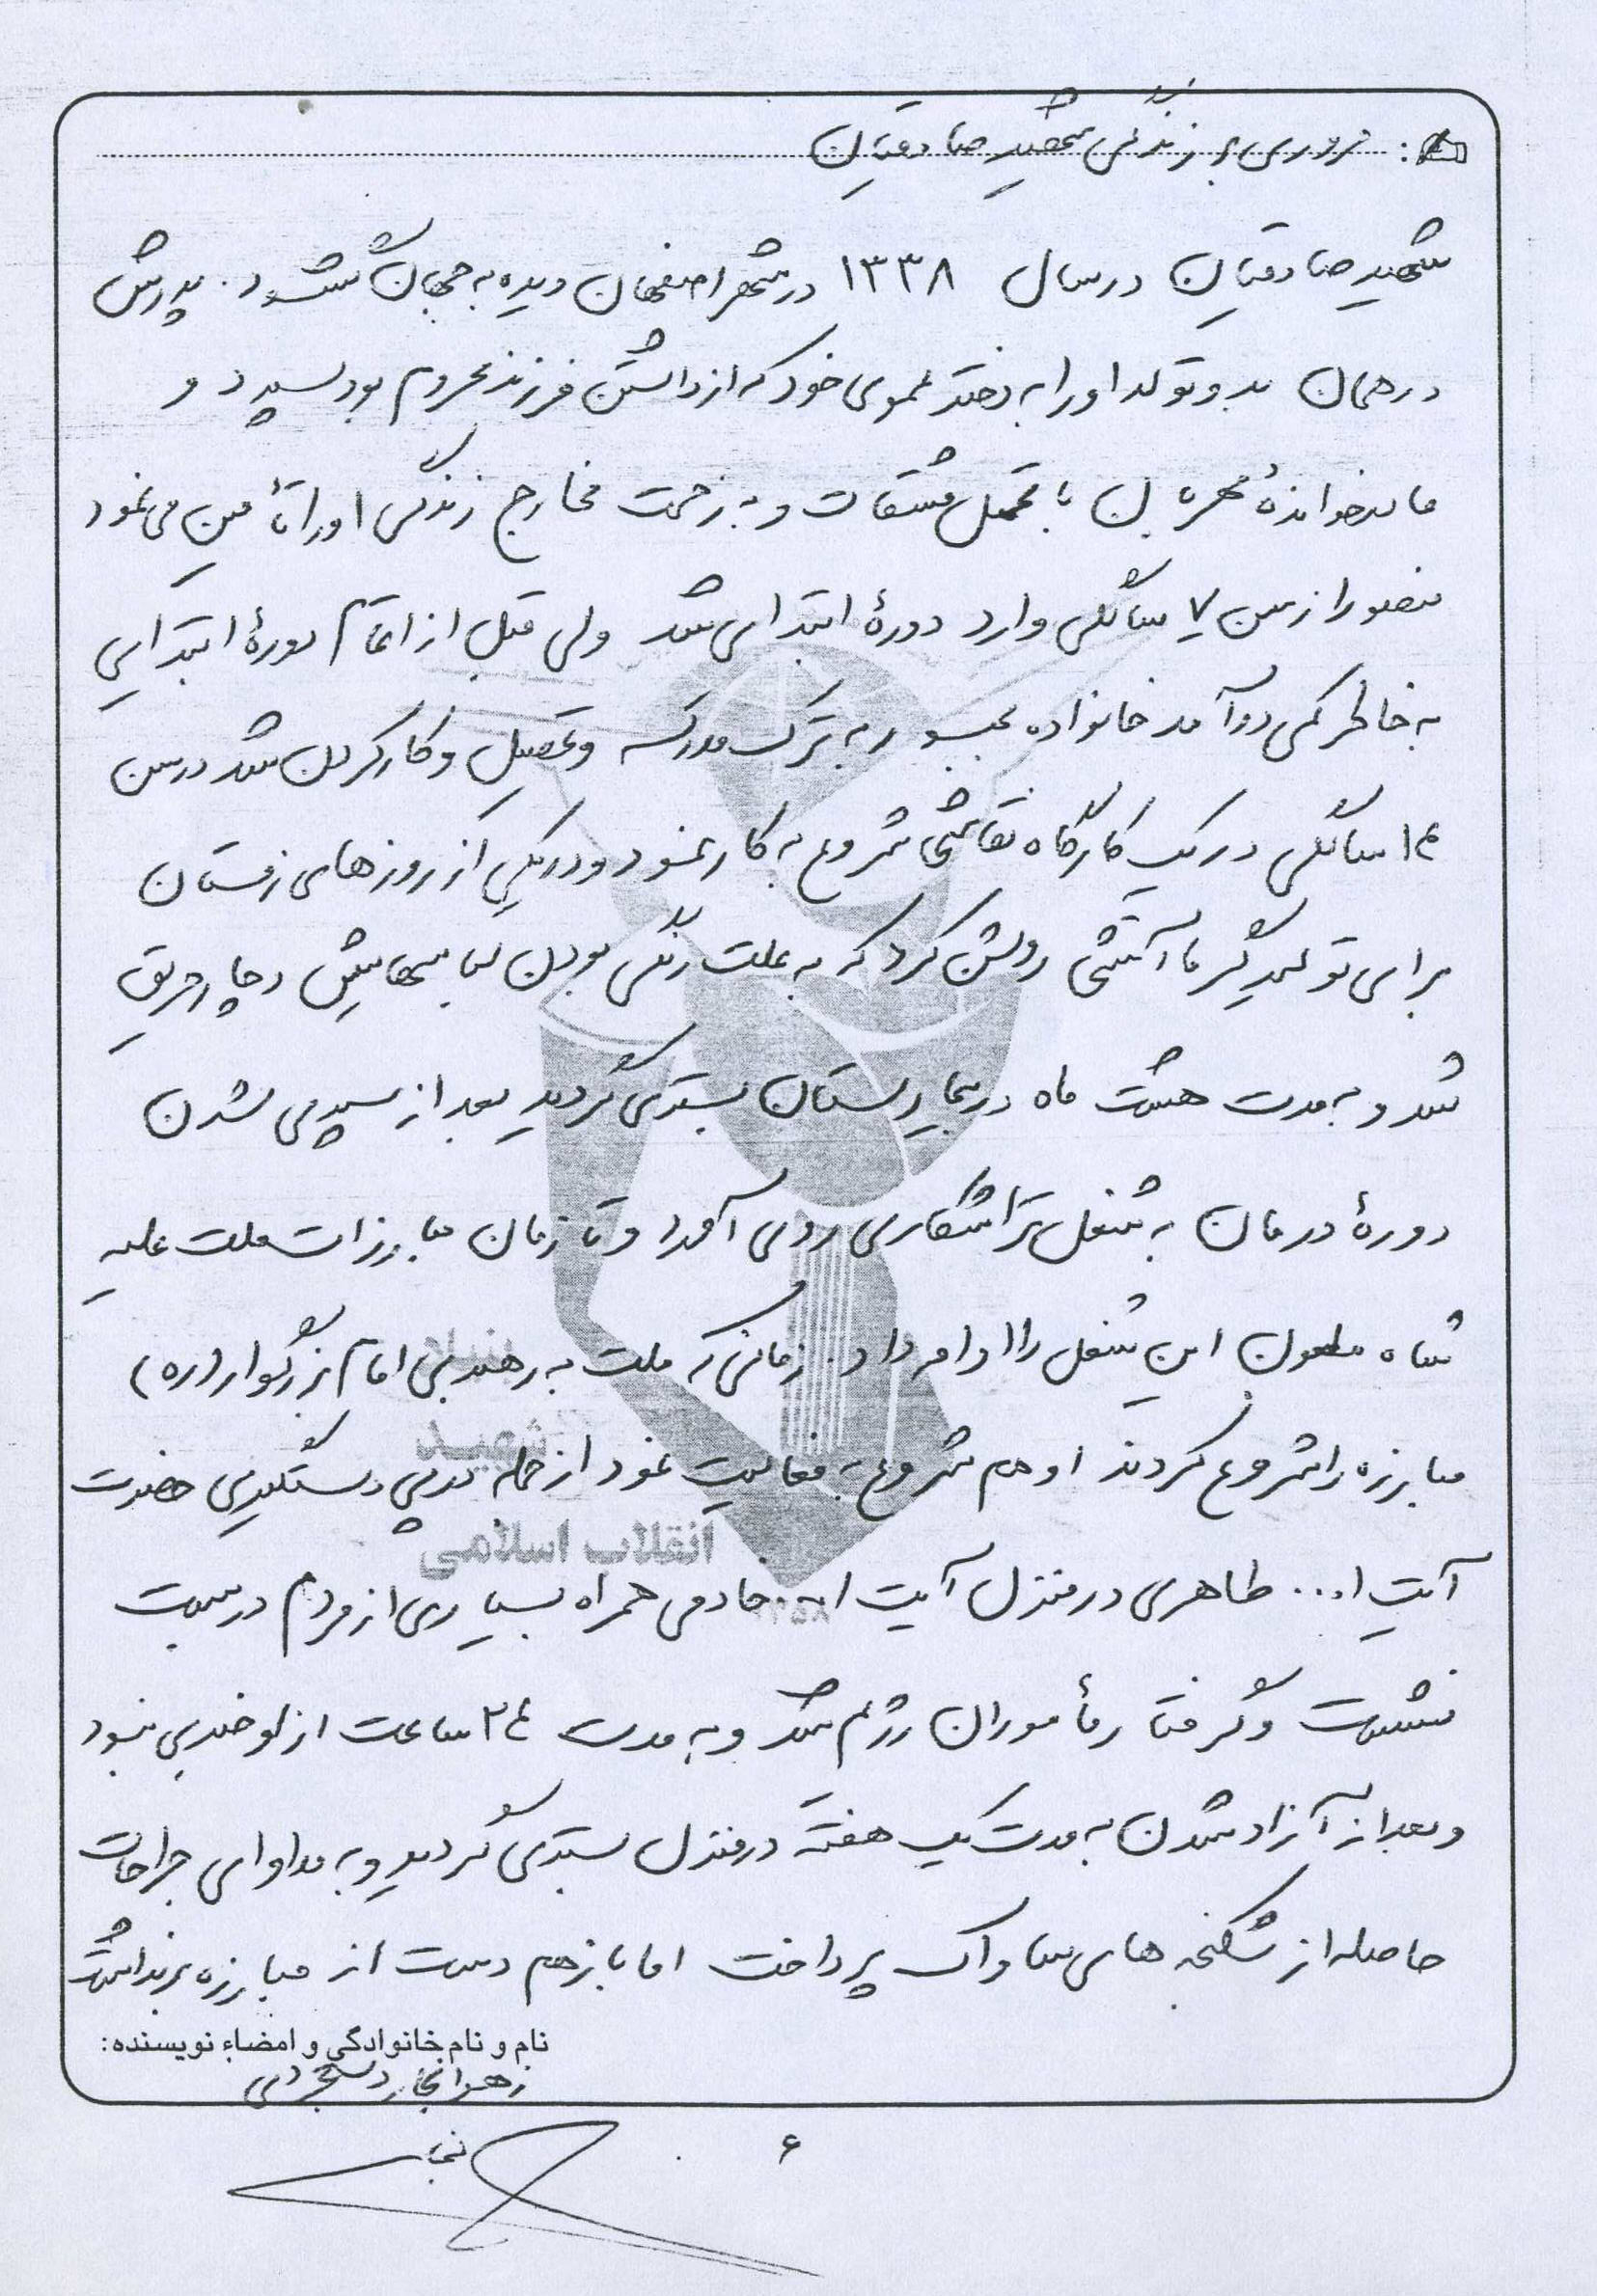 مروری بر زندگی شهید صادقیان
شهید صادقیان در سال ۱۳۳۸ در شهر اصفهان دیده به جهان گشود. پدرش
در همان بدو تولد او را به دختر عموی خود که از داشتن فرزند محروم بود سپرد و
مادرخواندهٔ مهربان با تحمل مشقات و به زحمت مخارج زندگی او را تأمین می نمود
منصور از سن ۷ سالگی وارد دورهٔ ابتدایی شد ولی قبل از اتمام دورهٔ ابتدایی
به خاطر کمی درآمد خانواده مجبور به ترک مدرسه و تحصیل و کار کردن شد در سن
۱۴ سالگی در یک کارگاه نقاشی شروع به کار نمود و در یکی از روزهای زمستان
برای تولید گرما آتشی روشن کرد که به علت رنگی بودن لباسهایش دچار حریق
شد و به مدت هشت ماه در بیمارستان بستری گردید بعد از سپری شدن
دورهٔ درمان به شغل تراشکاری روی آورد و تا زمان مبارزات ملت علیه
شاه ملعون این شغل را ادامه داد. زمانی که ملت به رهبری امام بزرگوار (ره)
مبارزه را شروع کردند او هم شروع به فعالیت نمود از جمله در پی دستگیری حضرت
آیت ا... طاهری در منزل آیت ا... خادمی همراه بسیاری از مردم در بست
نشست و گرفتار مأموران رژیم شد و به مدت ۲۴ ساعت از او خبری نبود
و بعد از آزاد شدن به مدت یک هفته در منزل بستری گردید و به مداوای جراحات
حاصله از شکنجه های ساواک پرداخت اما باز هم دست از مبارزه برنداشت
نام و نام خانوادگی و امضاء نویسنده:
زهرا نجار دستجردی
نجار
۶
بنیاد
شهید
انقلاب اسلامی